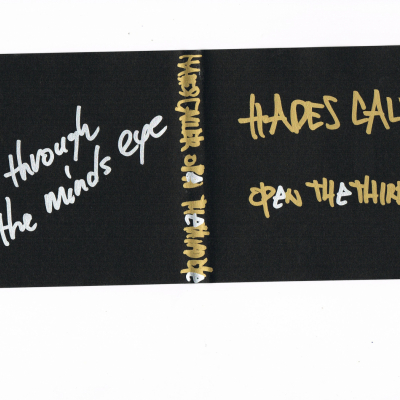 through
the minds eye
HADES CALLER OPEN THE
HADES CAL
OPEN THE THIR